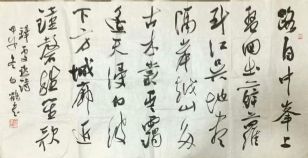 路自中峯上
盤回出薜蘿
到江吳地盡
隔岸越山多
古木叢青靄
遥天浸白波
下方城郭近
鐘磬雜笙歌